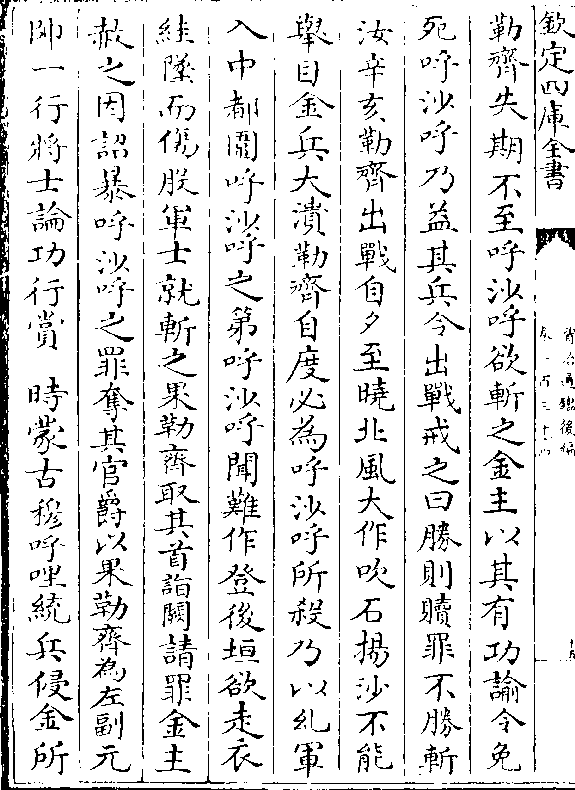 欽定四庫全書
資治通鑑後編
卷一百三十四
勒齊失期不至呼沙呼欲斬之金主以其有功諭令免
死呼沙呼乃益其兵令出戰戒之曰勝則贖罪不勝斬
汝辛亥勒齊出戰自夕至曉北風大作吹石揚沙不能
舉目金兵大潰勒齊自度必為呼沙呼所殺乃以乣軍
入中都圍呼沙呼之第呼沙呼聞難作登後垣欲走衣
絓墜而傷股軍士就斬之果勒齊取其首詣闕請罪金主
赦之因詔暴呼沙呼之罪奪其官爵以果勒齊為左副元
帥一行將士論功行賞 時蒙古穆呼哩統兵侵金所